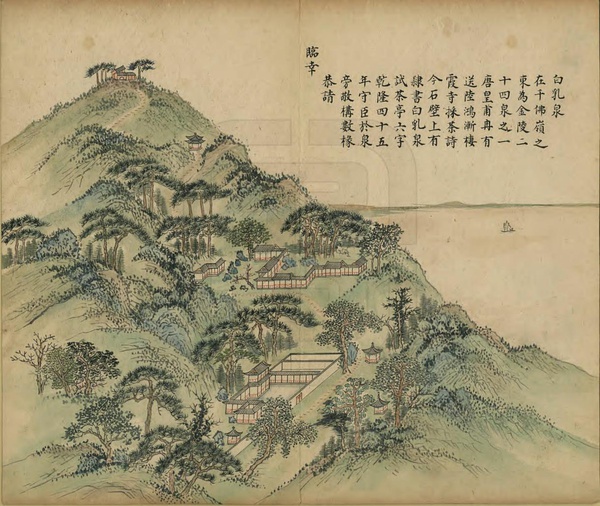 白乳泉
在千佛嶺之
東為金陵二
十四泉之一
唐皇甫冉有
送陸鴻漸棲
霞寺採茶詩
今石壁上有
隸書白乳泉
試茶亭六字
乾隆四十五
年守臣於泉
旁敬構數椽
恭請
臨幸